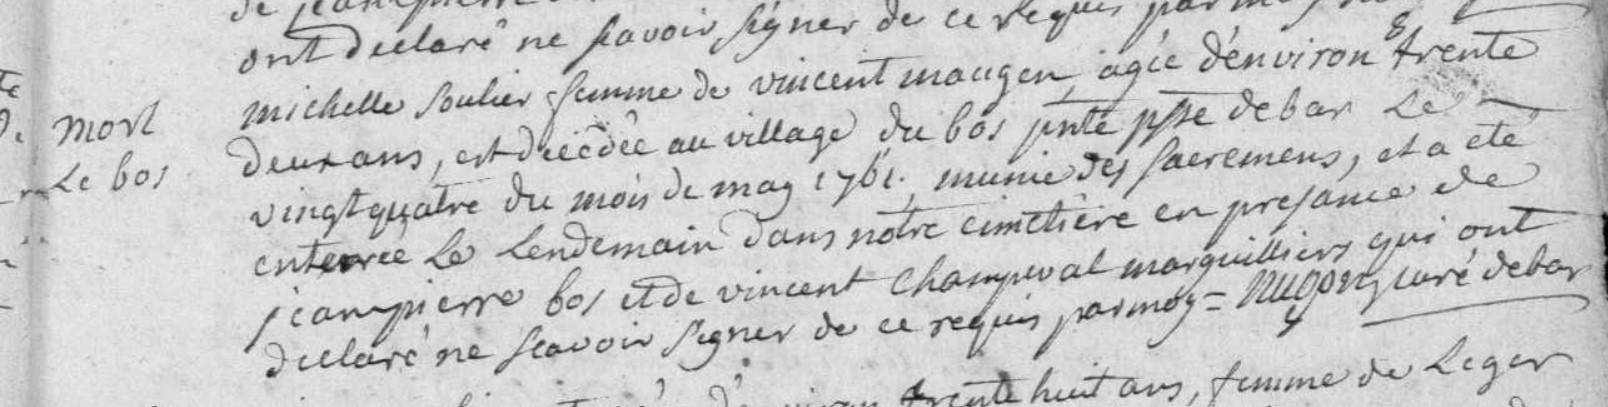 de jeanpierre
ont declaré ne scavoir signer de ce requis par moy
mort
Le bos
michelle soulier femme de vincent maugen, agée d'environ trente
deux ans, est decédée au village du bos pnte psse debar Le
vingtquatre du mois de may 1761. munie des sacremens, et a eté
enterrée Le Lendemain dans notre cimetière en presance de
jeanpierre bos et de vincent Champeval marguilliers qui ont
declaré ne scavoir signer de ce requis par moy = curé debar
trente huit ans, femme de Leger